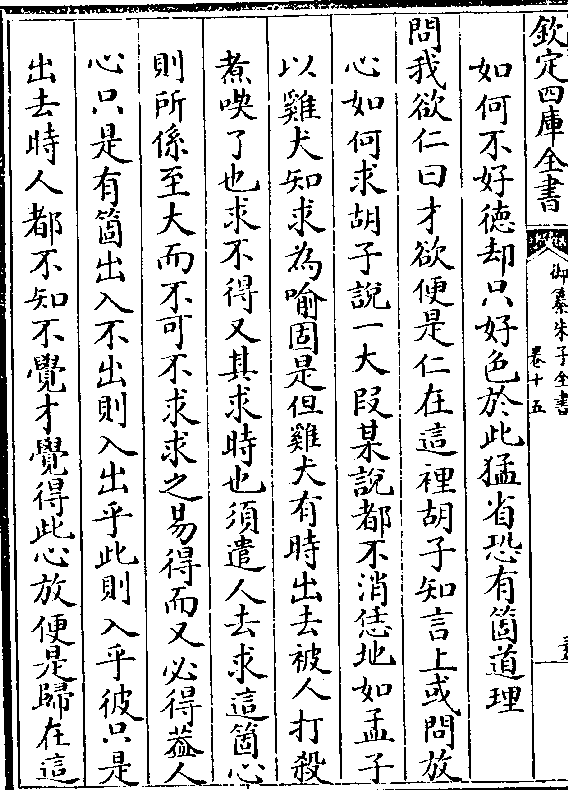 欽定四庫全書
御纂朱子全書
卷十五
如何不好徳却只好色於此猛省恐有箇道理
問我欲仁曰才欲便是仁在這裡胡子知言上或問放
心如何求胡子說一大段某說都不消恁地如孟子
以雞犬知求為喻固是但雞犬有時出去被人打殺
煮喫了也求不得又其求時也須遣人去求這箇心
則所係至大而不可不求求之易得而又必得葢人
心只是有箇出入不出則入出乎此則入乎彼只是
出去時人都不知不覺才覺得此心放便是歸在這